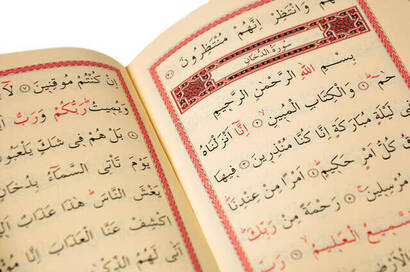 وَانْتَظِرْ اِنَّهُمْ مُنْتَظِرُونَ
سُورَةُ الدُّخَانِ
بِسْمِ اللّٰهِ الرَّحْمٰنِ الرَّحِيمِ
حٰمٓ وَالْكِتَابِ الْمُبِينِ اِنَّٓا اَنْزَلْنَاهُ
لَيْلَةٍ مُبَارَكَةٍ اِنَّا كُنَّا مُنْذِرِينَ فِيهَا
كُلُّ اَمْرٍ حَكِيمٍ اَمْرًا مِنْ عِنْدِنَا
مُرْسِلِينَ رَحْمَةً مِنْ رَبِّكَ
السَّمِيعُ الْعَلِيمُ
اِنْ كُنْتُمْ مُوقِنِينَ لَٓا
وَيُمِيتُ رَبُّكُمْ وَرَبُّ
بَلْ هُمْ فِي شَكٍّ يَلْعَبُو
يَوْمَ تَأْتِي السَّمَٓاءُ بِدُخَانٍ
يَغْشَى النَّاسَ هٰذَا عَذَابٌ
اكْشِفْ عَنَّا الْعَذَابَ اِنَّا
اَنّٰى لَهُمُ الذِّكْرٰى